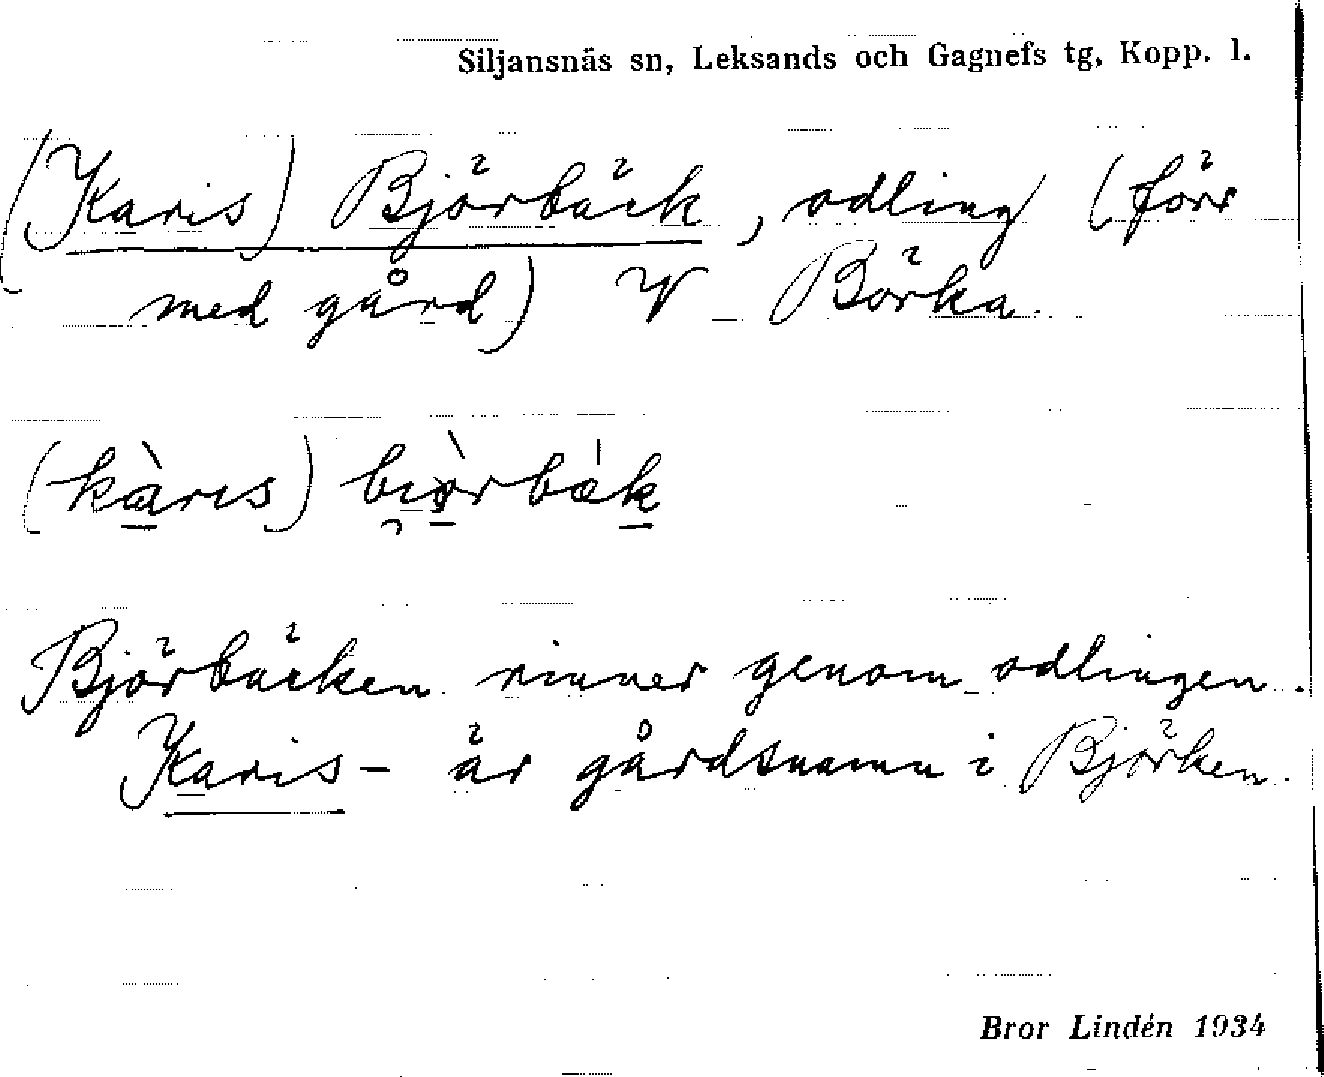 Siljansnäs sn, Leksands och Gagnefs tg, Kopp. l.
(Karis) Björbäck, odling (förr
med gård) V Börka
(kàris) biòrbák
Björbäcken rinner genom odlingen.
Karis- är gårdsnamn i Björken.
Bror Lindén 1934